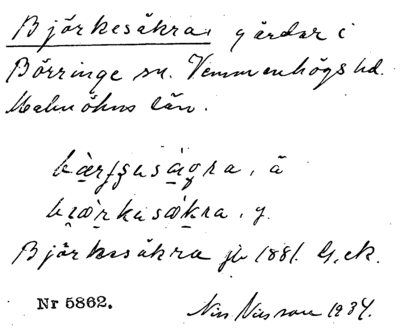 Björkesåkra, gårdar i
Börringe sn. Vemmenhögs hd.
Malmöhus län.
Björkesåkra jb 1881. G.ek.
Nr 5862.
Nils Nilsson 1934.